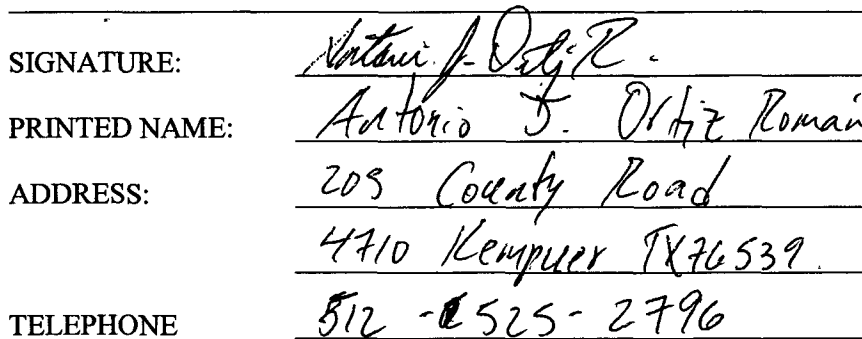 SIGNATURE: Antonio J. Ortiz R.
PRINTED NAME: Antonio J. Ortiz Roman
ADDRESS: 209 County Road
4710 Kempner TX 76539
TELEPHONE 512-525-2796